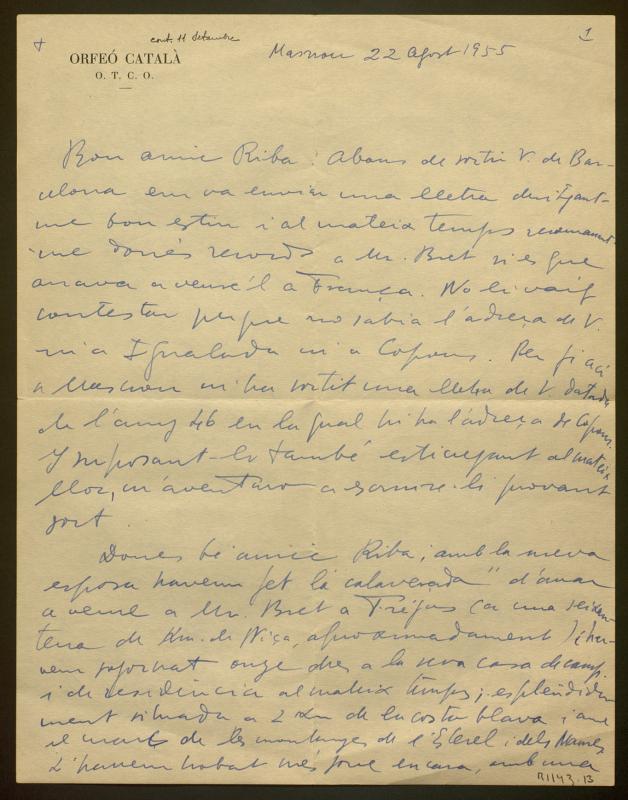 +
cont. 11 setembre
1
ORFEÓ CATALÀ
O. T. C. O.
Masnou 22 Agost 1955
Bon amic Riba: Abans de sortir V. de Bar-
celona em va enviar una lletra desitjant-
me bon estiu i al mateix temps recomanant-
me donés records a Mr. Bret si es que
anava a veure'l a França. No li vaig
contestar perque no sabia l'adreça de V.
ni a Igualada ni a Copons. Per fi ací
a Masnou m'ha sortit una lletra de V. datada
de l'any 46 en la qual hi ha l'adreça de Copons.
Y suposant-lo també estiuejant al mateix
lloc, m'aventuro a escriure-li provant
sort.
Dones bé amic Riba; amb la meva
esposa havem fet la "calaverada" d'anar
a veure a Mr. Bret a Fréjus (a una seixan-
tena de Km. de Niça, aproximadament) i ha-
vem sojornat onze dies a la seva casa de camp,
i de residència al mateix temps; esplèndida-
ment situada a 2 Km de la costa blava i amb
el marc de les montanyes de l'Esterel i dels Maures
L'havem trobat més jove encara, amb una
R1143.13